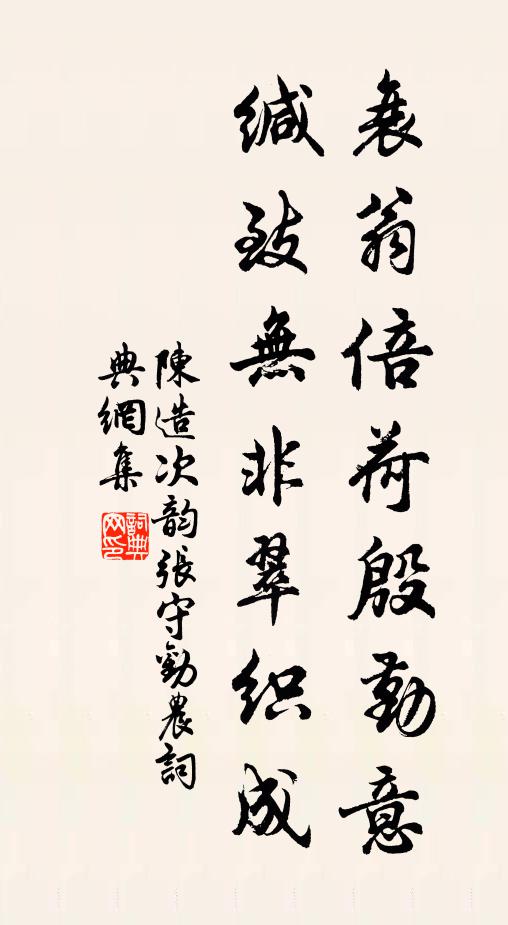 衰翁倍荷殷勤意
缄致無非翠织成
陳造次韵張守勸農詞
典網集
詞典網印